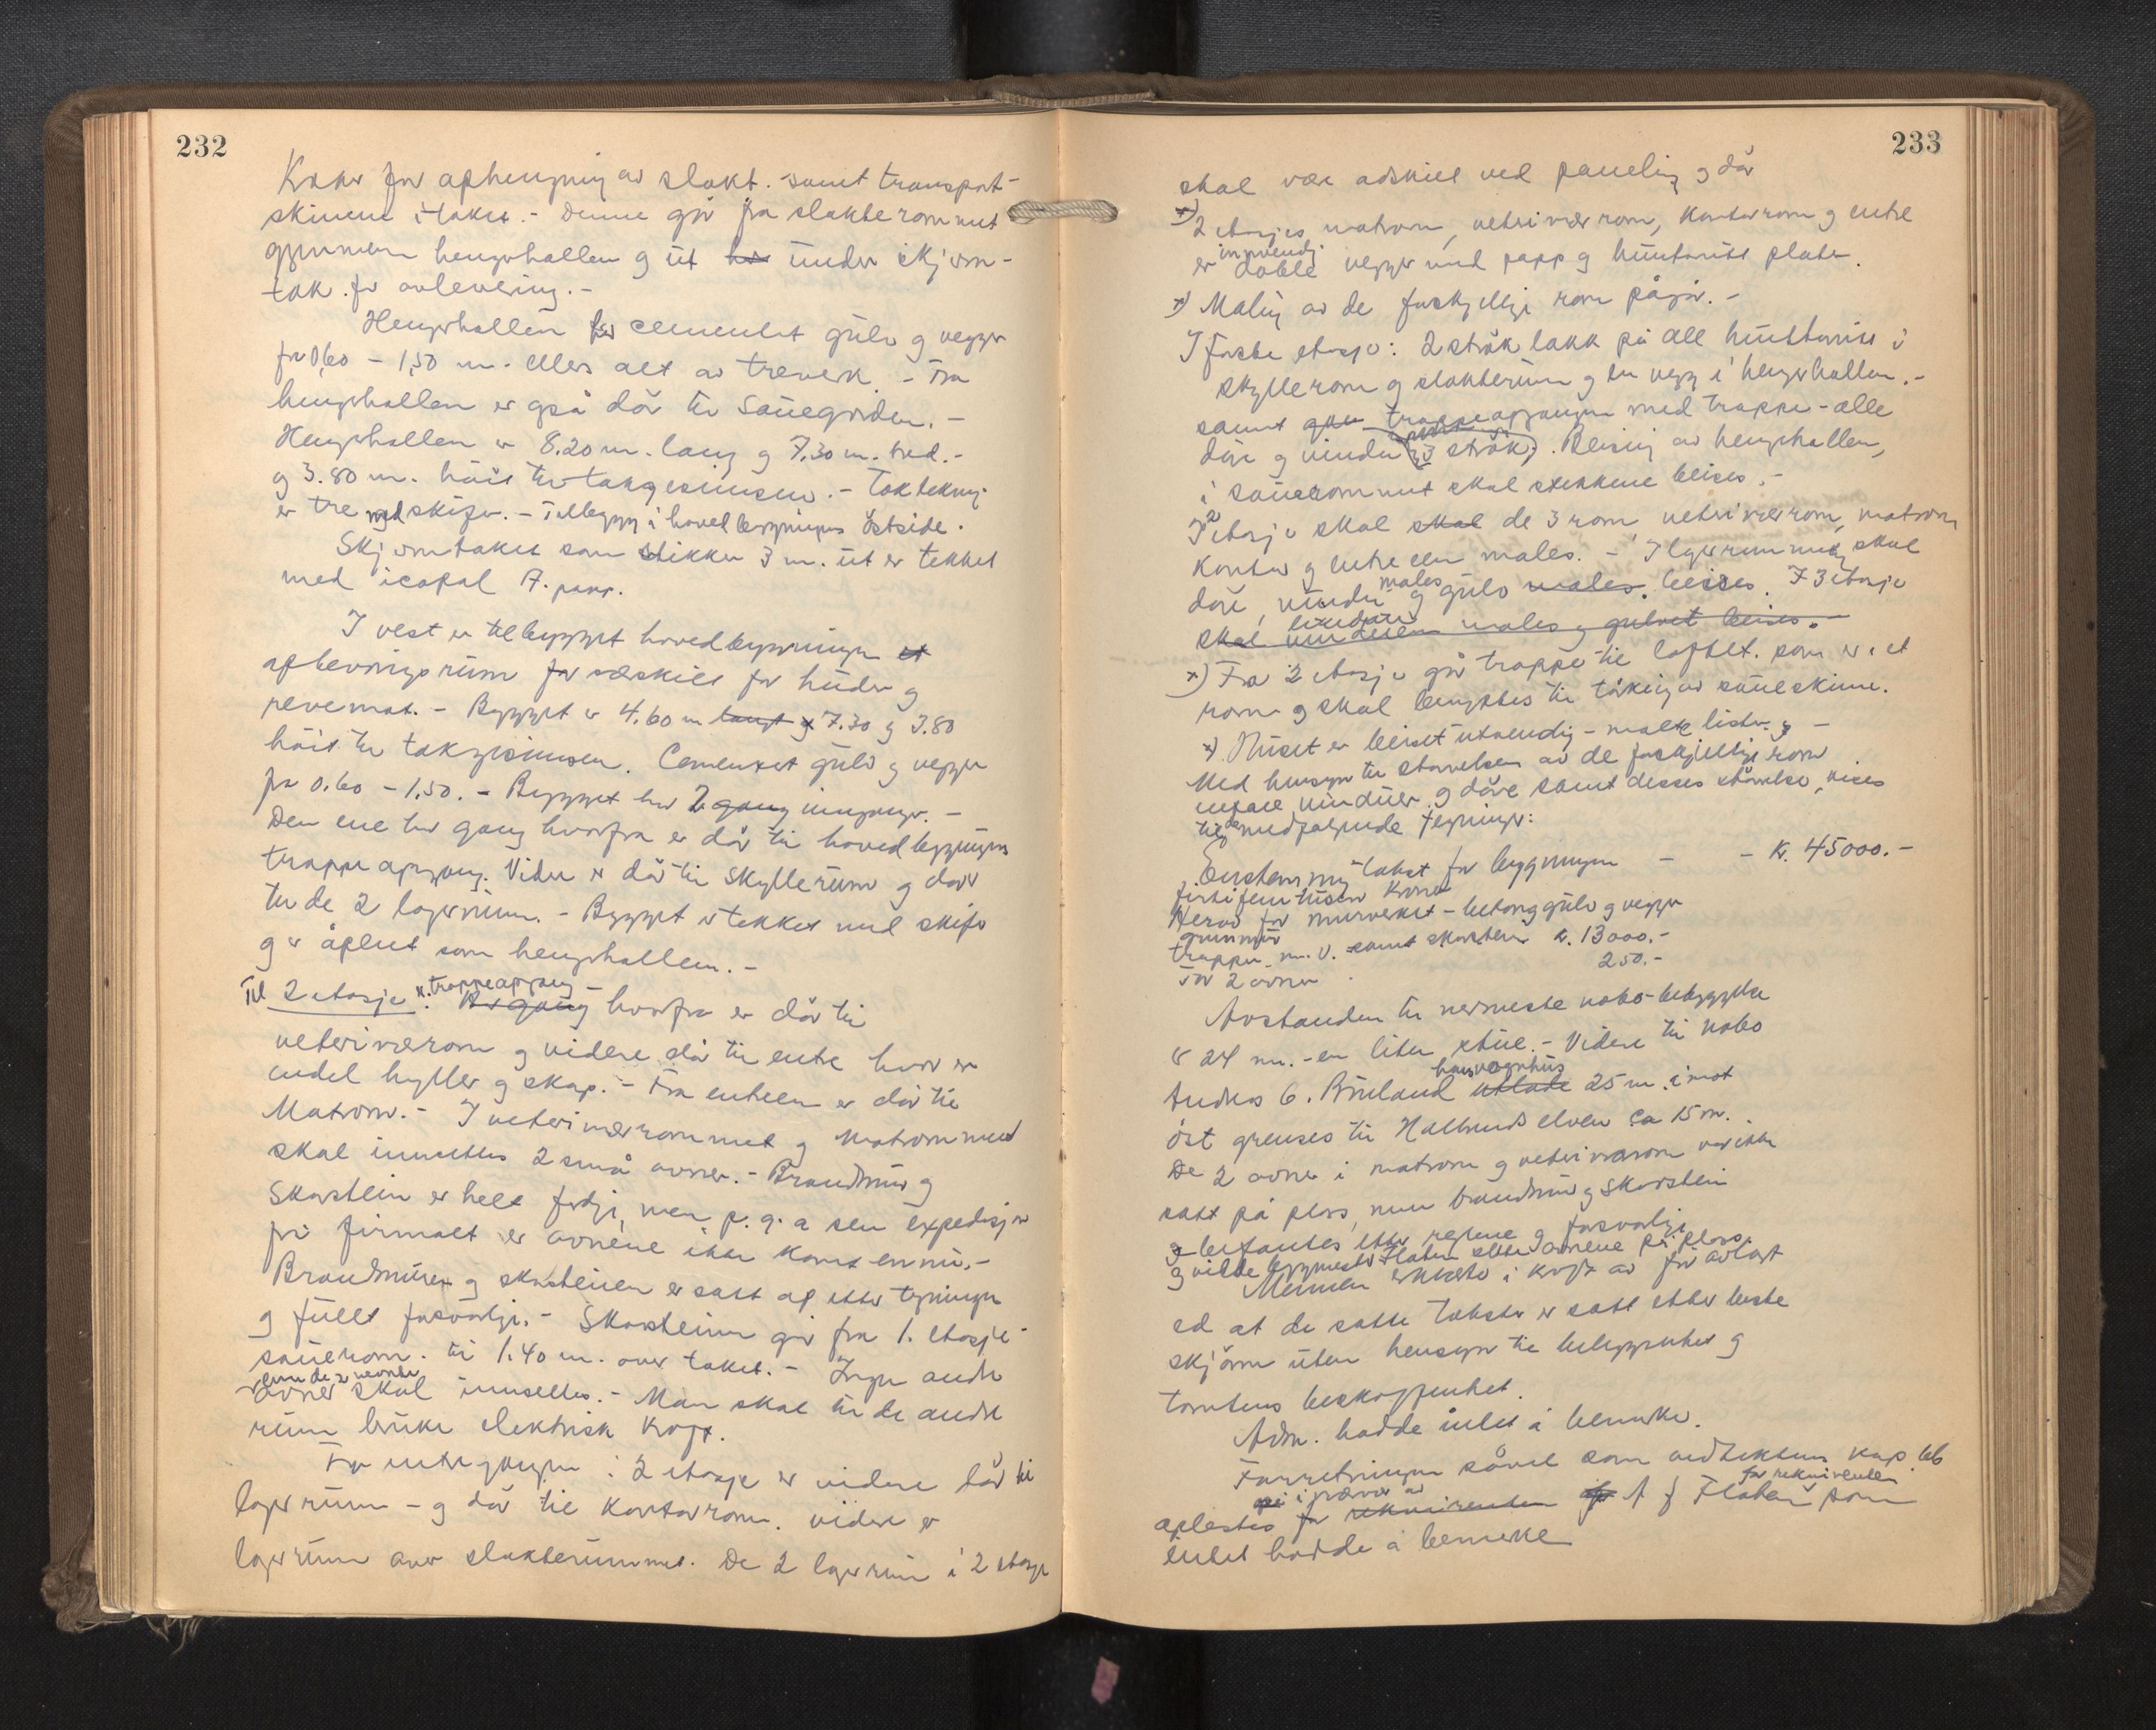 232
Kroker for ophengning av slakt. samt transport-
skinene i taket. - Denne går fra slakterommet
gjennem hengerhallen og ut her under skjerm-
tak for avlevering. -
Hengerhallen har cementet gulv og vegger
fra 0,60 - 1,50 m. ellers alt av treverk. - Fra
hengerhallen er også dör til Sauegarden. -
Hengerhallen er 8.20 m. lang og 7.30 m. bred. -
og 3.80 m. höit til takgesimsen. - Taktekning
er tre med skifer. - Tilbygg i hovedbygningens östside.
Skjermtaket som stikker 3 m. ut er tekket
med icopal A. papp.
I vest er tilbygget hovedbygningen et
opbevaringsrum for særskilt for huder og
revemat. - Bygget er 4.60 m langt og 7.30 og 3.80
höit til takgesimsen. Cementert gulv og vegger
fra 0.60 - 1.50. - Bygget har 2 gang innganger. -
Den ene har gang hvorfra er dör til hovedbygningens
trappeopgang. Videre er dör til skyllerum og dörer
til de 2 lagerrum. - Bygget er tekket med skifer
og er åplest som hengerhallen. -
Til 2 etasje er trappeopgang -
Bergang hvorfra er dör til
veterinærrom og videre dör til entre hvor er
endel hyller og skap. - Fra entreen er dör til
Matrom. - I veterinærrommet og Matrommet
skal innsettes 2 små ovner. - Brandmur og
Skorstein er helt ferdig, men p. g. a sen expedisjon
fra firmaet er ovnene ikke komt ennu. -
Brandmuren og skorsteinen er satt op etter tegningen
og fullt forsvarlig. - Skorsteinen går fra 1. etasje
sauerom. til 1.40 m. over taket. - Ingen andre
enn de 2 nevnte
ovner skal innsettes. - Man skal til de andre
rum bruke elektrisk kraft.
Fra entregangen i 2 etasje er videre dör til
lagerrum - og dör til kontorrom. videre er
lagerrum over slakterummet. De 2 lagerrum i 2 etasje
233
skal være adskilt ved paneling og dör
x) 2 etasjes matrom, veterinærrom, kontorrom og entre
innvendig
er doble vegger med papp og huntonitt plater.
x) Maling av de forskjellige rom pågår. -
I förste etasje: 2 strök lakk på all huntonitt i
skyllerom og slakterum og en vegg i hengerhallen. -
samt trappeopgangen med trappe - alle
döre og vinduer 3 strök. Beising av hengerhallen,
i sauerommet skal stekkene beises. -
I 2 etasje skal skal de 3 rom veterinærrom, matrom
kontor og entreen males. - I lagerrummet skal
döre, vinduer males og gulv males. beises. I 3 etasje
skal vinduene males og gulvet beises. -
x) Fra 2 etasje går trappe til loftet. som er i et
rom og skal benyttes til törking av saueskinn.
x) Huset er beiset utvendig - malte lister og -
Med hensyn til störrelsen av de forskjellige rom
antall vinduer og döre samt desses störrelse, vises
til de medfölgende tegninger:
Enstemmig takst for bygningen - - Kr. 45000. -
förtifemtusen kroner
Herav for murverket - betonggulv og vegger
grunnmur
trapper m. v. samt skorstein kr. 13000. -
For 2 ovner 250. -
Avstanden til nermeste nabo-bebyggelse
er 24 m. - en liten stue. - Videre til nabo
Andres G. Bueland utlade 25 m. i mot
öst grenses til Hallands elven ca 15 m.
De 2 ovner i matrom og veterinærrom var ikke
satt på plass, men brandmur og skorstein
og befantes etter reglene og forsvarlig
og vilde byggmester Flaten sette ovnene på plass.
Mennen erklærte i kraft av för avlagt
ed at de satte takster er satt etter beste
skjönn uten hensyn til beliggenhet og
tomtens beskaffenhet.
Adm. hadde intet å bemerke.
Forretningen såvel som vedtektens kap. 6b
oplestes for rekvirenten A J Flaten for rekvirenten som
intet hadde å bemerke